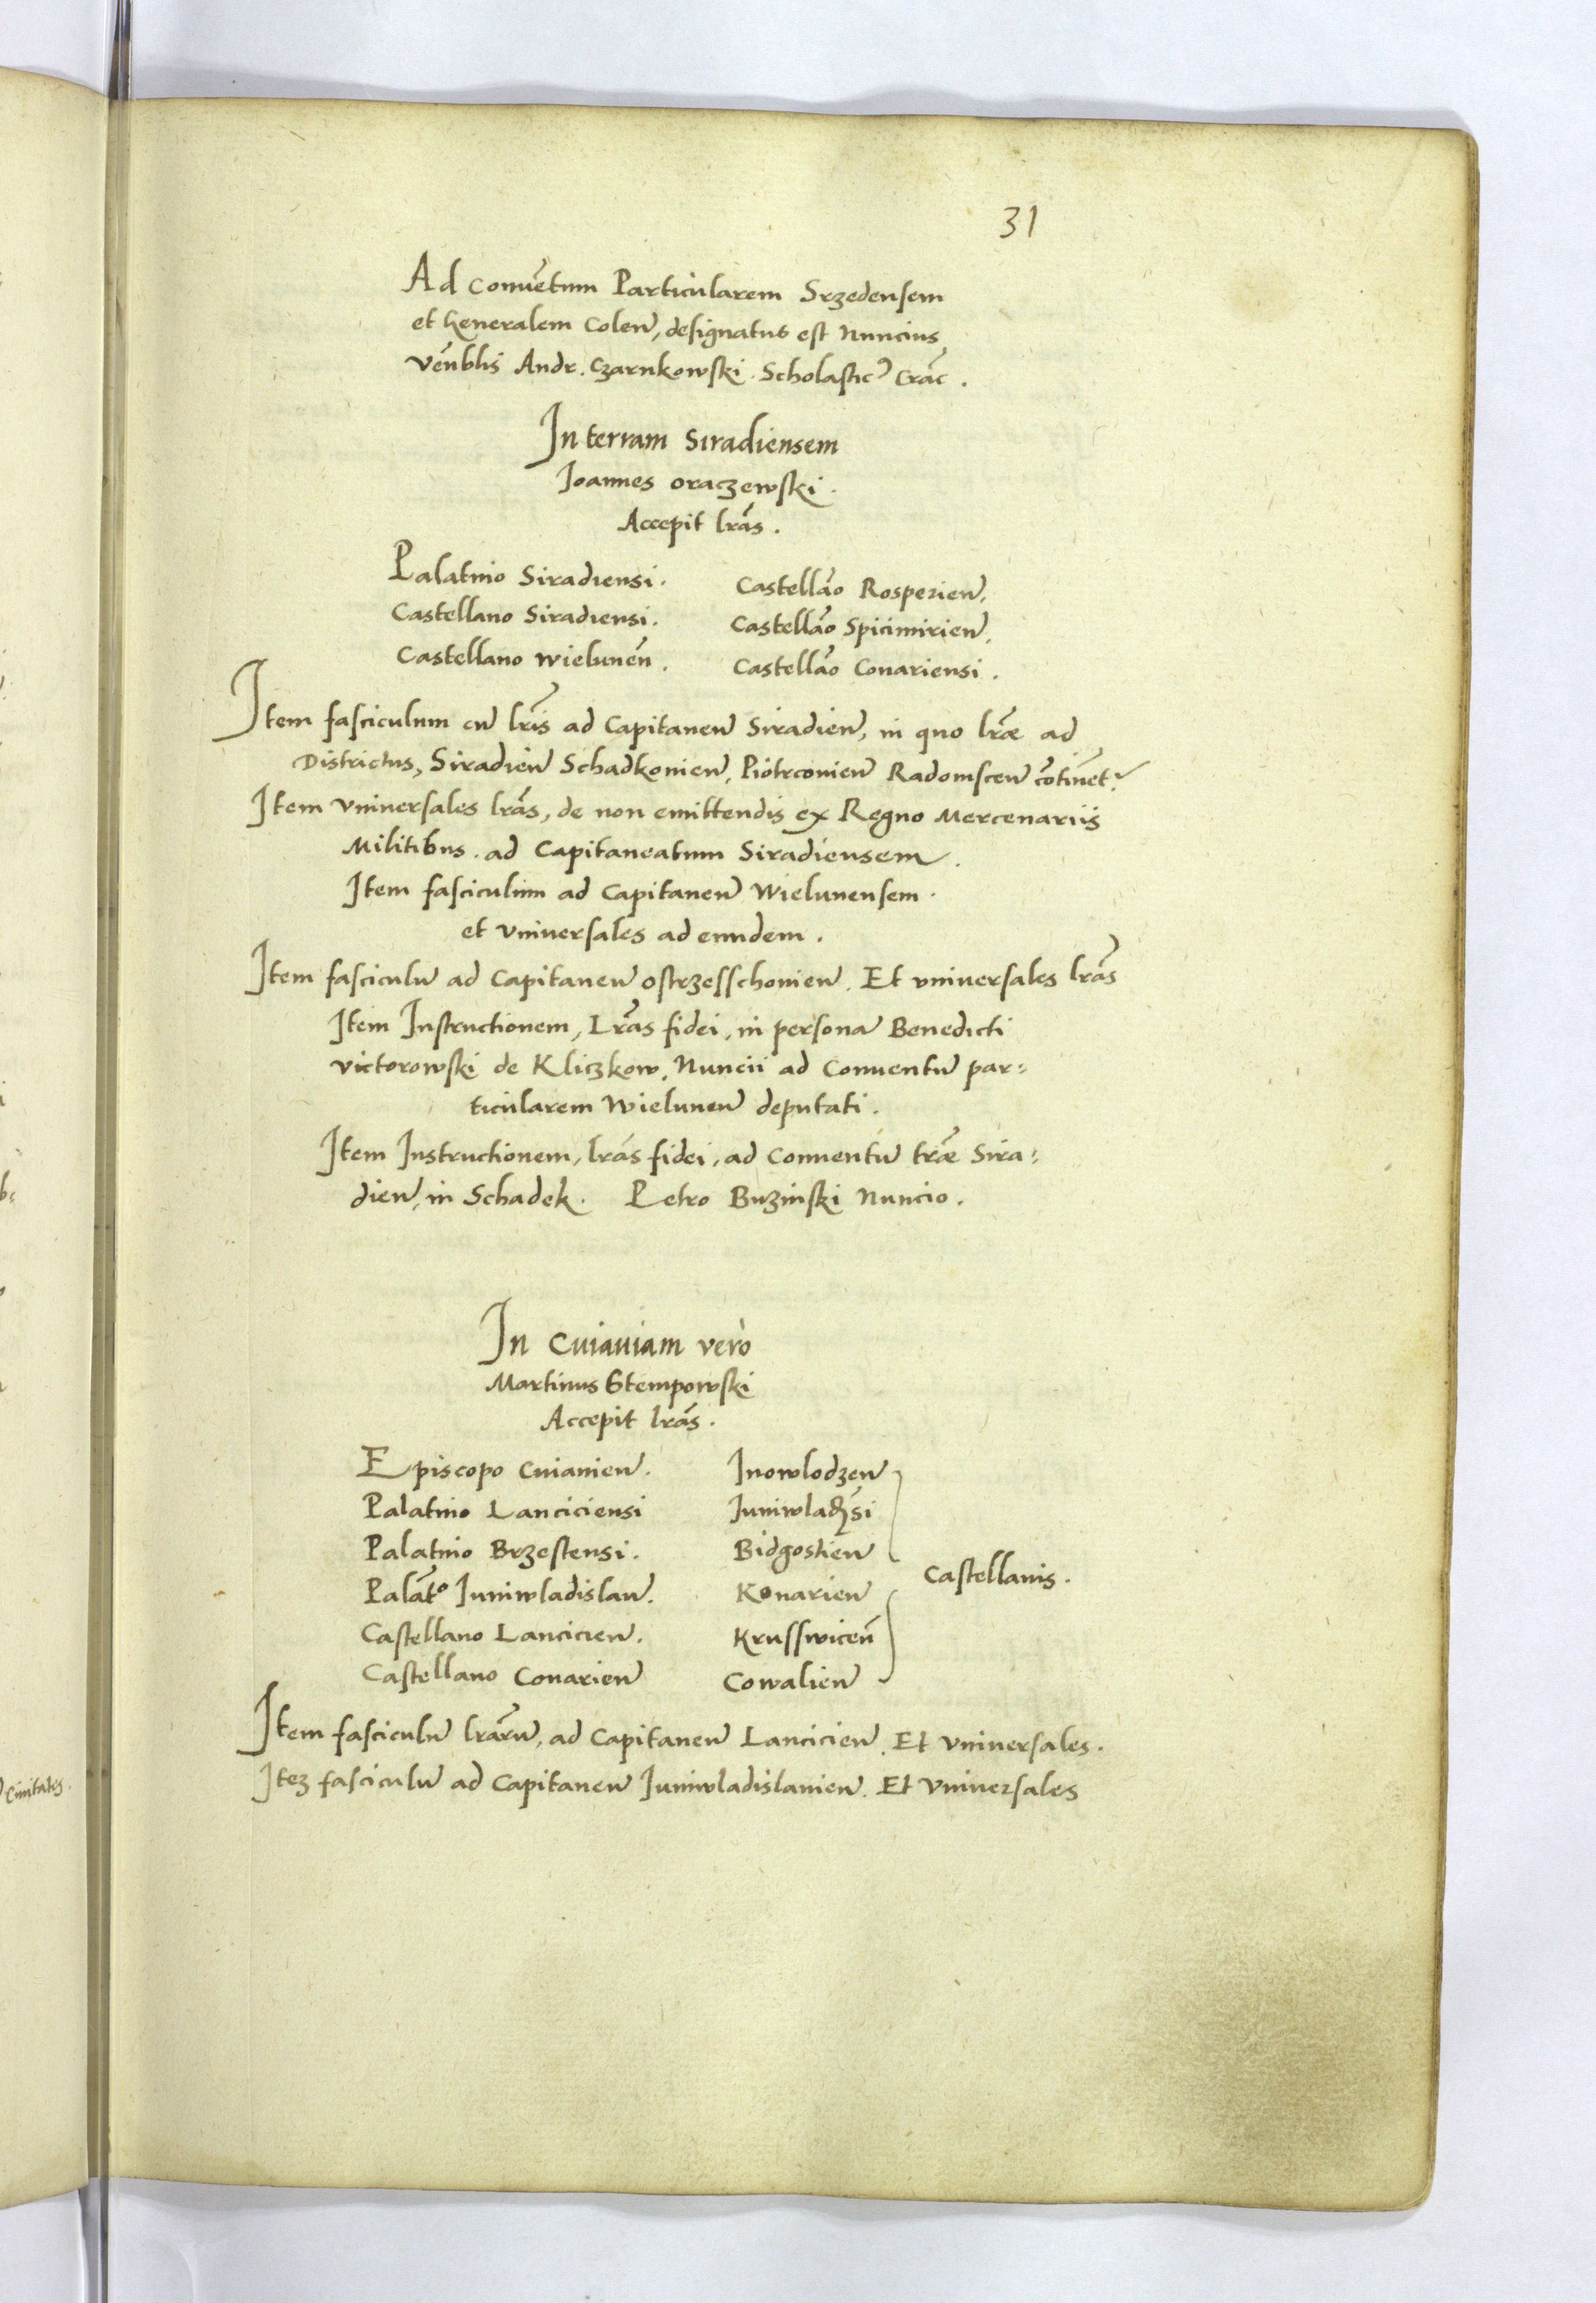 31
Ad Conuẽtum Particularem Srzedensem
et Generalem Coleñ, designatus est Nuncius
Vẽnblis Andr. Czarnkowski Scholastic⁹ Crac̃.
In terram Siradiensem
Ioannes Oraczewski.
Accepit lrãs.
Palatino Siradiensi.
Castellano Siradiensi.
Castellano Wieluneñ.
Castellão Rosperieñ.
Castellão Spicimirieñ.
Castellão Conariensi.
Item fasciculum cũ lrĩs ad Capitaneũ Siradieñ, in quo lrãe ad
Districtus, Siradieñ Schadkonieñ, Piotrconieñ Radomsceñ cõtinẽt.
Item Vniuersales lrãs, de non emittendis ex Regno Mercenariis
Militibus. ad Capitaneatum Siradiensem.
Item fasciculum ad Capitaneũ Wielunensem.
et vniuersales ad eundem.
Item fasciculũ ad Capitaneũ Ostrzesschonieñ. Et vniuersales lrãs
Item Instructionem, Lrãs fidei, in personã Benedicti
Victorowski de Kliczkow, Nuncii ad Conuentũ par=
ticularem Wieluneñ deputati.
Item Instructionem, lrãs fidei, ad Conuentũ trãe Sira=
dieñ, in Schadek. Petro Buzinski Nuncio.
In Cuiauiam verò
Martinus Stempowski
Accepit lrãs.
Episcopo Cuiauieñ.
Palatino Lanciciensi
Palatino Brzestensi.
Palãt° Iuniwladislaũ.
Castellano Lancicieñ.
Castellano Conarieñ
Inowlodzeñ
Iuniwladsi
Bidgostieñ
Konarieñ
Krusswiceñ
Cowalieñ
Castellanis.
Item fasciculũ lrãrũ, ad Capitaneũ Lancicieñ. Et Vniuersales.
Itez fasciculũ ad Capitaneũ Iuniwladislauieñ. Et Vniuersales
Ciuitates.